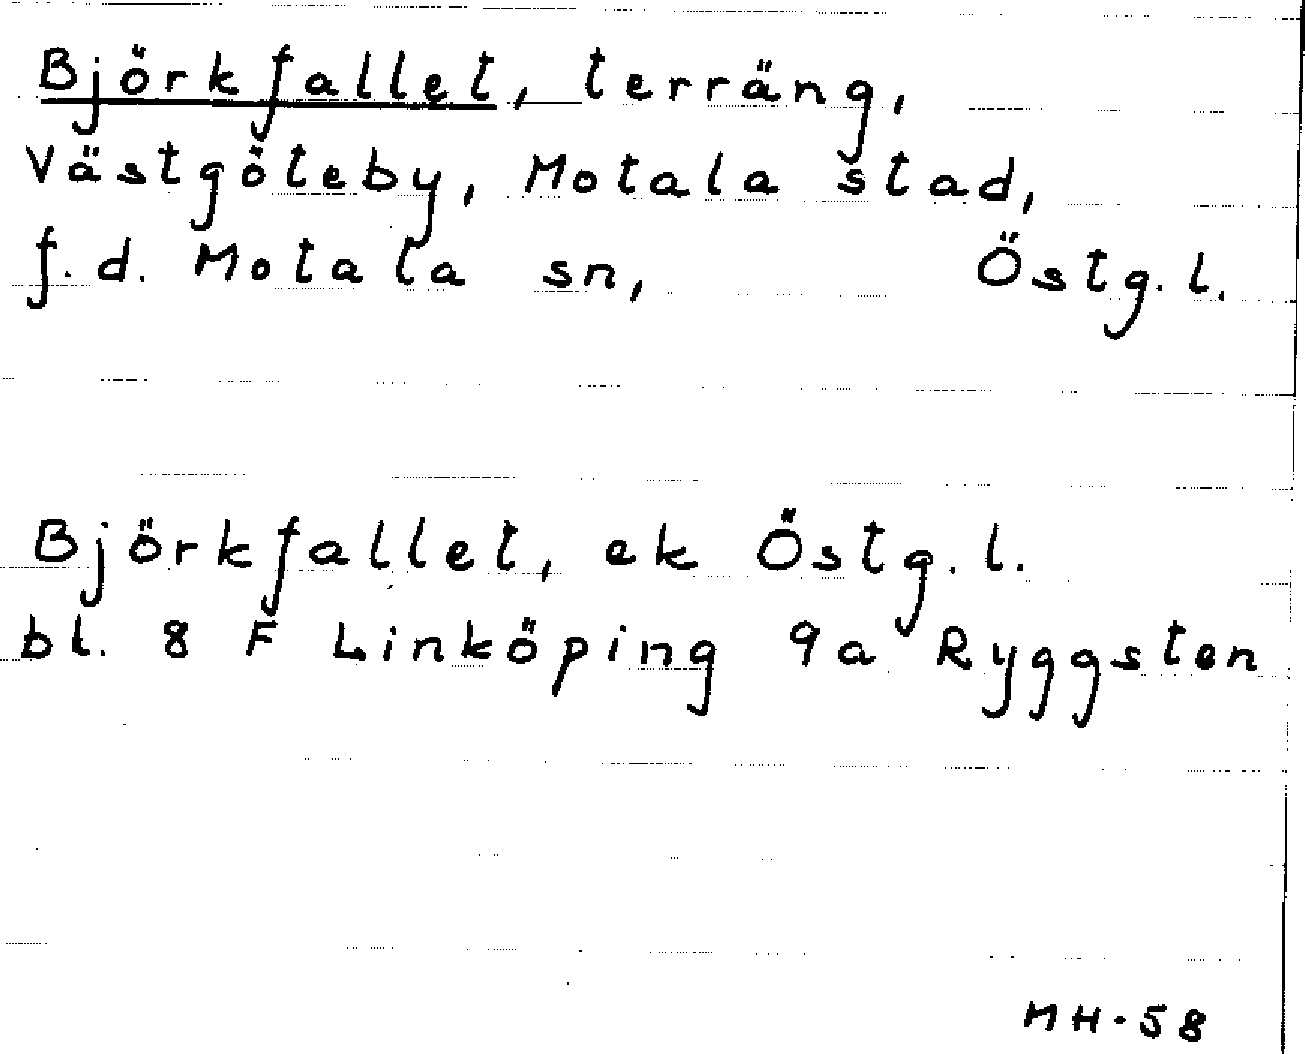 Björkfallet, terräng,
Västgöteby, Motala stad,
f.d. Motala sn, Östg.l.
Björkfallet, ek Östg.l.
bl. 8 F Linköping 9a Ryggsten
MH-58